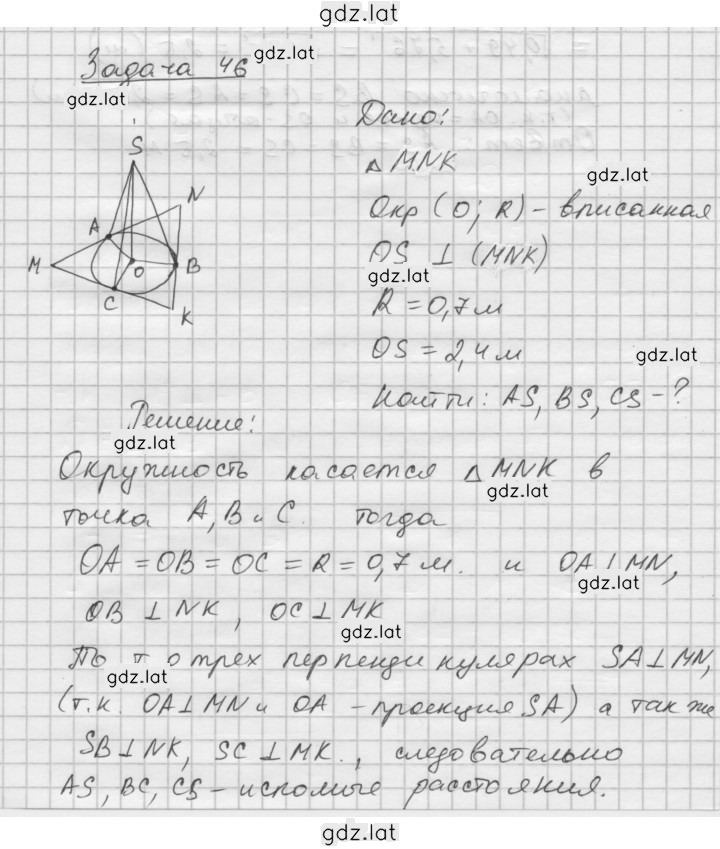 gdz.lat
Задача 46
gdz.lat
gdz.lat
Дано:
S
△ MNK
gdz.lat
N
A
Окр (O; R) - вписанная
M
O
B
OS ⊥ (MNK)
gdz.lat
C
K
R = 0,7 м
OS = 2,4 м
gdz.lat
Найти: AS, BS, CS - ?
Решение:
gdz.lat
Окружность касается △ MNK в
gdz.lat
точка A, B и C. тогда
OA = OB = OC = R = 0,7 м. и OA ⊥ MN,
gdz.lat
OB ⊥ NK, OC ⊥ MK
gdz.lat
По т. о трех перпендикулярах SA ⊥ MN,
gdz.lat
(т.к. OA ⊥ MN и OA - проекция SA) а так же
SB ⊥ NK, SC ⊥ MK., следовательно
AS, BC, CS - искомые расстояния.
gdz.lat